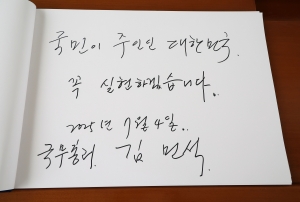 국민이 주인인 대한민국.
꼭 실현하겠습니다.
2025년 7월 4일.
국무총리 김민석.